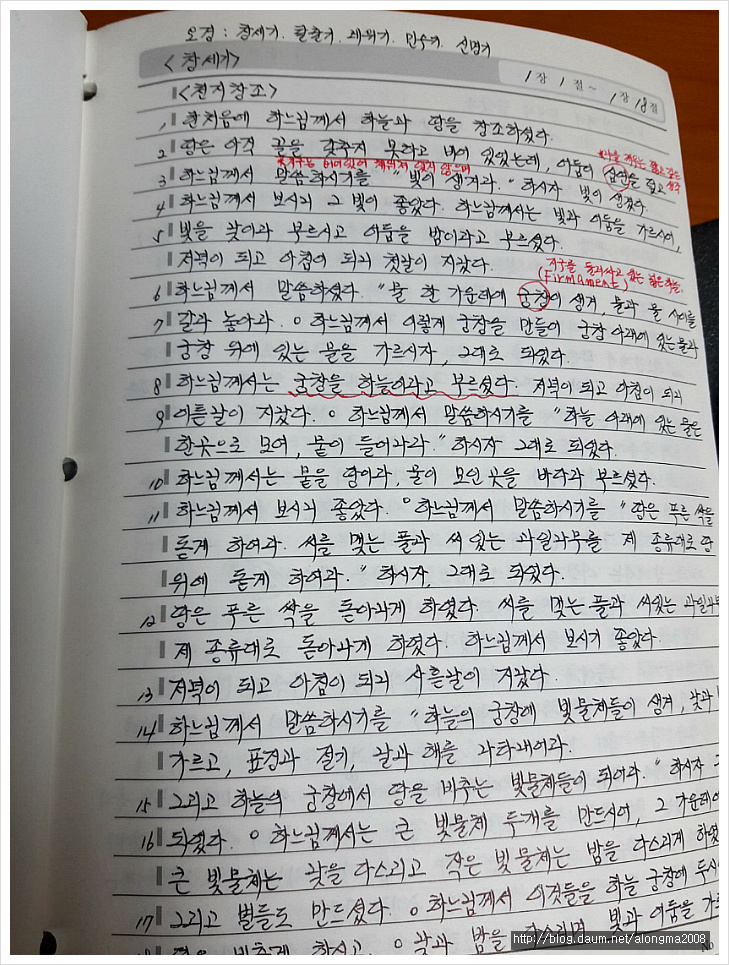 오경 : 창세기. 탈출기. 레위기. 민수기. 신명기
<창세기>
1장 1절 ~ 1장 18절
<천지창조>
1 한처음에 하느님께서 하늘과 땅을 창조하셨다.
2 땅은 아직 꼴을 갖추지 못하고 비어 있었는데, 어둠이 심연을 덮고
*지구는 비어있어 채워져 있지 않으며
3 하느님께서 말씀하시기를 "빛이 생겨라." 하시자 빛이 생겼다.
4 하느님께서 보시니 그 빛이 좋았다. 하느님께서는 빛과 어둠을 가르시어,
5 빛을 낮이라 부르시고 어둠을 밤이라고 부르셨다.
저녁이 되고 아침이 되니 첫날이 지났다.
지구를 둘러싸고 있는 넓은 하늘.
(Firmament)
6 하느님께서 말씀하셨다. "물 한 가운데에 궁창이 생겨, 물과 물 사이를
7 갈라 놓아라. ○ 하느님께서 이렇게 궁창을 만들어 궁창 아래에 있는 물과
궁창 위에 있는 물을 가르시자, 그대로 되었다.
8 하느님께서는 궁창을 하늘이라고 부르셨다. 저녁이 되고 아침이 되니
9 이튿날이 지났다. ○ 하느님께서 말씀하시기를 "하늘 아래에 있는 물은
한곳으로 모여, 뭍이 들어나라." 하시자 그대로 되었다.
10 하느님께서는 뭍을 땅이라, 물이 모인 곳을 바다라 부르셨다.
11 하느님께서 보시니 좋았다. ○ 하느님께서 말씀하시기를 "땅은 푸른 싹을
돋게 하여라. 씨를 맺는 풀과 씨 있는 과일나무를 제 종류대로 땅
위에 돋게 하여라." 하시자, 그대로 되었다.
12 땅은 푸른 싹을 돋아나게 하였다. 씨를 맺는 풀과 씨있는 과일나무
제 종류대로 돋아나게 하였다. 하느님께서 보시기 좋았다.
13 저녁이 되고 아침이 되니 사흗날이 지났다.
14 하느님께서 말씀하시기를 "하늘의 궁창에 빛물체들이 생겨, 낮과
가르고, 표징과 절기, 날과 해를 나타내어라.
15 그리고 하늘의 궁창에서 땅을 비추는 빛물체들이 되어라." 하시자 그
16 되었다. ○ 하느님께서는 큰 빛물체 두개를 만드시어, 그 가운데에
큰 빛물체는 낮을 다스리고 작은 빛물체는 밤을 다스리게 하였
17 그리고 별들도 만드셨다. ○ 하느님께서 이것들을 하늘 궁창에 두시
비추게 하시고, ○ 낮과 밤을 다스리며 빛과 어둠을 가르
http://blog.daum.net/alongma2008